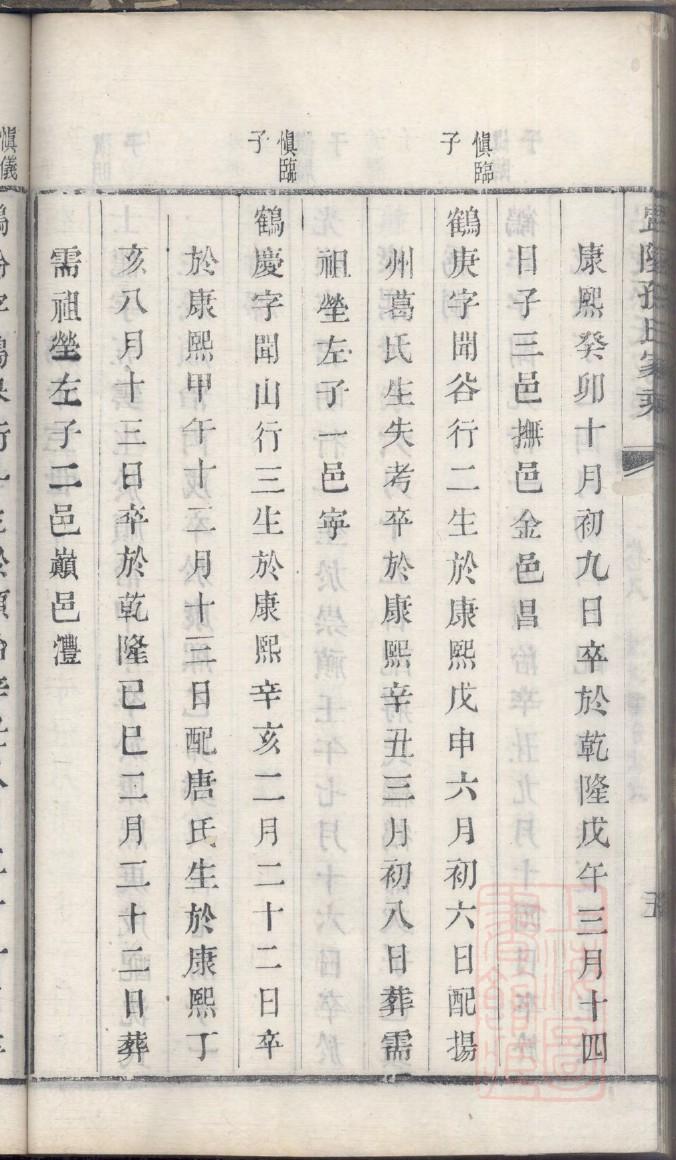 康熙癸卯十月初九日卒於乾隆戊午三月十四
日子三邑撫邑金邑昌
慎臨子
鶴庚字聞谷行二生於康熙戊申六月初六日配揚
州葛氏生失考卒於康熙辛丑三月初八日葬需
祖塋左子一邑寧
慎臨子
鶴慶字聞山行三生於康熙辛亥二月二十二日卒
於康熙甲午十二月十三日配唐氏生於康熙丁
亥八月十三日卒於乾隆己巳二月二十二日葬
需祖塋左子二邑巔邑灃
慎儀